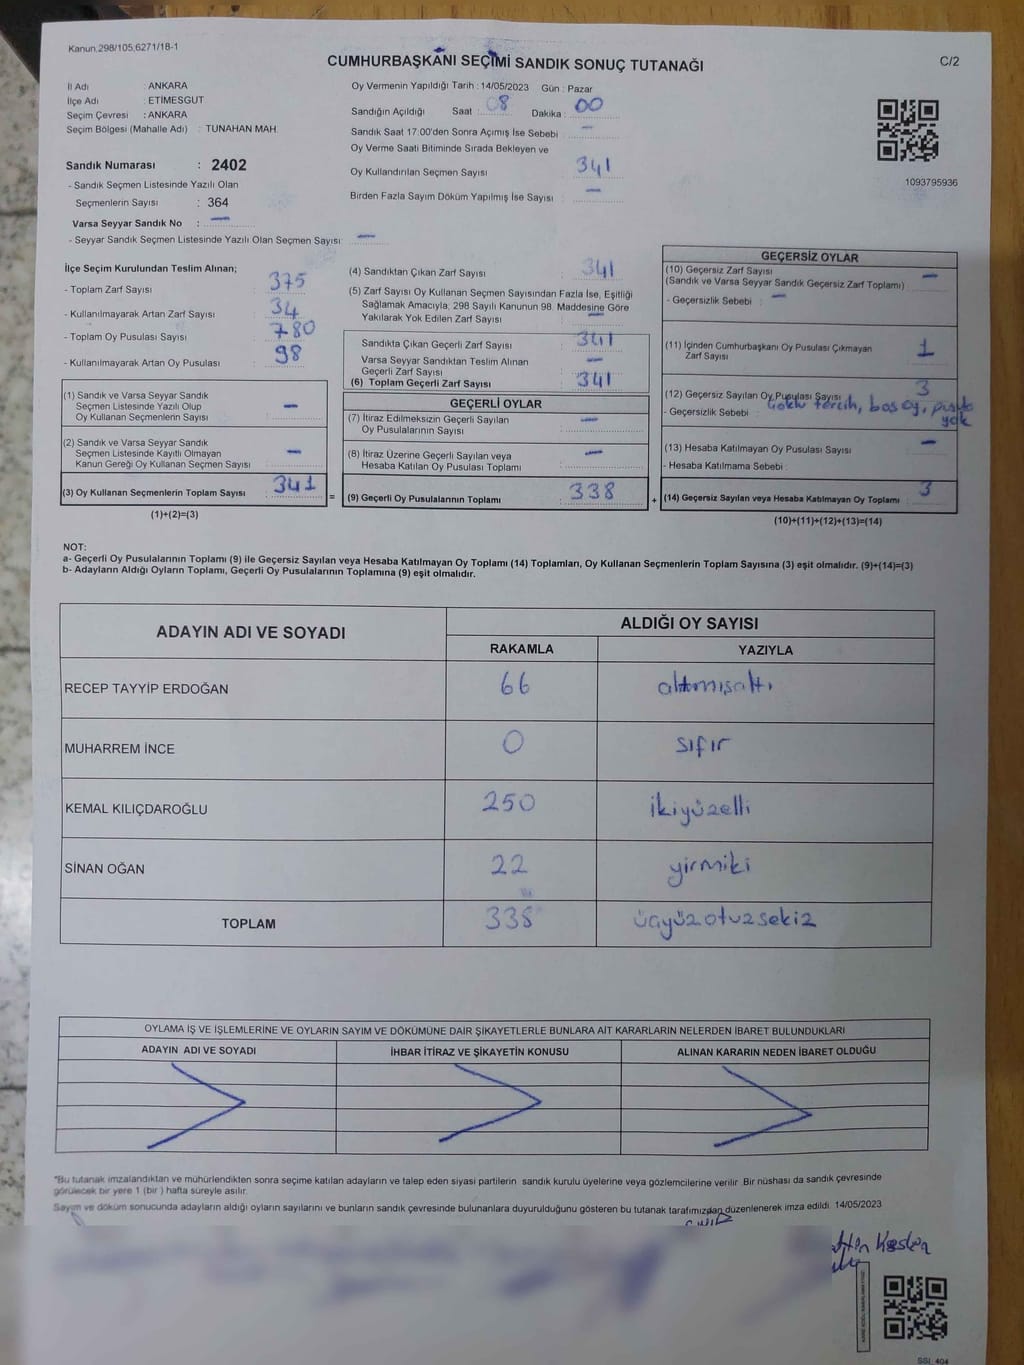 Kanun.298/105,6271/18-1
CUMHURBAŞKANI SEÇİMİ SANDIK SONUÇ TUTANAĞI
C/2
İl Adı : ANKARA
İlçe Adı : ETİMESGUT
Seçim Çevresi : ANKARA
Seçim Bölgesi (Mahalle Adı) : TUNAHAN MAH.
Sandık Numarası : 2402
- Sandık Seçmen Listesinde Yazılı Olan
Seçmenlerin Sayısı : 364
Varsa Seyyar Sandık No : —
- Seyyar Sandık Seçmen Listesinde Yazılı Olan Seçmen Sayısı: —
Oy Vermenin Yapıldığı Tarih : 14/05/2023 Gün : Pazar
Sandığın Açıldığı Saat : 08 Dakika : 00
Sandık Saat 17:00'den Sonra Açımış İse Sebebi : —
Oy Verme Saati Bitiminde Sırada Bekleyen ve
Oy Kullandırılan Seçmen Sayısı : 341
Birden Fazla Sayım Döküm Yapılmış İse Sayısı : —
1093795936
İlçe Seçim Kurulundan Teslim Alınan;
- Toplam Zarf Sayısı : 375
- Kullanılmayarak Artan Zarf Sayısı : 34
- Toplam Oy Pusulası Sayısı : 780
- Kullanılmayarak Artan Oy Pusulası : 98
(1) Sandık ve Varsa Seyyar Sandık
Seçmen Listesinde Yazılı Olup
Oy Kullanan Seçmenlerin Sayısı : —
(2) Sandık ve Varsa Seyyar Sandık
Seçmen Listesinde Kayıtlı Olmayan
Kanun Gereği Oy Kullanan Seçmen Sayısı : —
(3) Oy Kullanan Seçmenlerin Toplam Sayısı : 341
(1)+(2)=(3)
=
(4) Sandıktan Çıkan Zarf Sayısı : 341
(5) Zarf Sayısı Oy Kullanan Seçmen Sayısından Fazla İse, Eşitliği
Sağlamak Amacıyla; 298 Sayılı Kanunun 98. Maddesine Göre
Yakılarak Yok Edilen Zarf Sayısı : —
Sandıkta Çıkan Geçerli Zarf Sayısı : 341
Varsa Seyyar Sandıktan Teslim Alınan
Geçerli Zarf Sayısı : —
(6) Toplam Geçerli Zarf Sayısı : 341
GEÇERLİ OYLAR
(7) İtiraz Edilmeksizin Geçerli Sayılan
Oy Pusulalarının Sayısı : —
(8) İtiraz Üzerine Geçerli Sayılan veya
Hesaba Katılan Oy Pusulası Toplamı : —
(9) Geçerli Oy Pusulalarının Toplamı : 338
+
GEÇERSİZ OYLAR
(10) Geçersiz Zarf Sayısı : —
(Sandık ve Varsa Seyyar Sandık Geçersiz Zarf Toplamı)
- Geçersizlik Sebebi : —
(11) İçinden Cumhurbaşkanı Oy Pusulası Çıkmayan
Zarf Sayısı : 1
(12) Geçersiz Sayılan Oy Pusulası Sayısı : 3
- Geçersizlik Sebebi : tercih, boş oy, pusula
yok
(13) Hesaba Katılmayan Oy Pusulası Sayısı : —
- Hesaba Katılmama Sebebi :
(14) Geçersiz Sayılan veya Hesaba Katılmayan Oy Toplamı : 3
(10)+(11)+(12)+(13)=(14)
NOT:
a- Geçerli Oy Pusulalarının Toplamı (9) ile Geçersiz Sayılan veya Hesaba Katılmayan Oy Toplamı (14) Toplamları, Oy Kullanan Seçmenlerin Toplam Sayısına (3) eşit olmalıdır. (9)+(14)=(3)
b- Adayların Aldığı Oyların Toplamı, Geçerli Oy Pusulalarının Toplamına (9) eşit olmalıdır.
ADAYIN ADI VE SOYADI
ALDIĞI OY SAYISI
RAKAMLA YAZIYLA
RECEP TAYYİP ERDOĞAN 66 altmışaltı
MUHARREM İNCE 0 sıfır
KEMAL KILIÇDAROĞLU 250 ikiyüzelli
SİNAN OĞAN 22 yirmiki
TOPLAM 338 üçyüzotuzsekiz
OYLAMA İŞ VE İŞLEMLERİNE VE OYLARIN SAYIM VE DÖKÜMÜNE DAİR ŞİKAYETLERLE BUNLARA AİT KARARLARIN NELERDEN İBARET BULUNDUKLARI
ADAYIN ADI VE SOYADI İHBAR İTİRAZ VE ŞİKAYETİN KONUSU ALINAN KARARIN NEDEN İBARET OLDUĞU
*Bu tutanak imzalandıktan ve mühürlendikten sonra seçime katılan adayların ve talep eden siyasi partilerin sandık kurulu üyelerine veya gözlemcilerine verilir. Bir nüshası da sandık çevresinde
görülecek bir yere 1 (bir) hafta süreyle asılır.
Sayım ve döküm sonucunda adayların aldığı oyların sayılarını ve bunların sandık çevresinde bulunanlara duyurulduğunu gösteren bu tutanak tarafımızdan düzenlenerek imza edildi. 14/05/2023